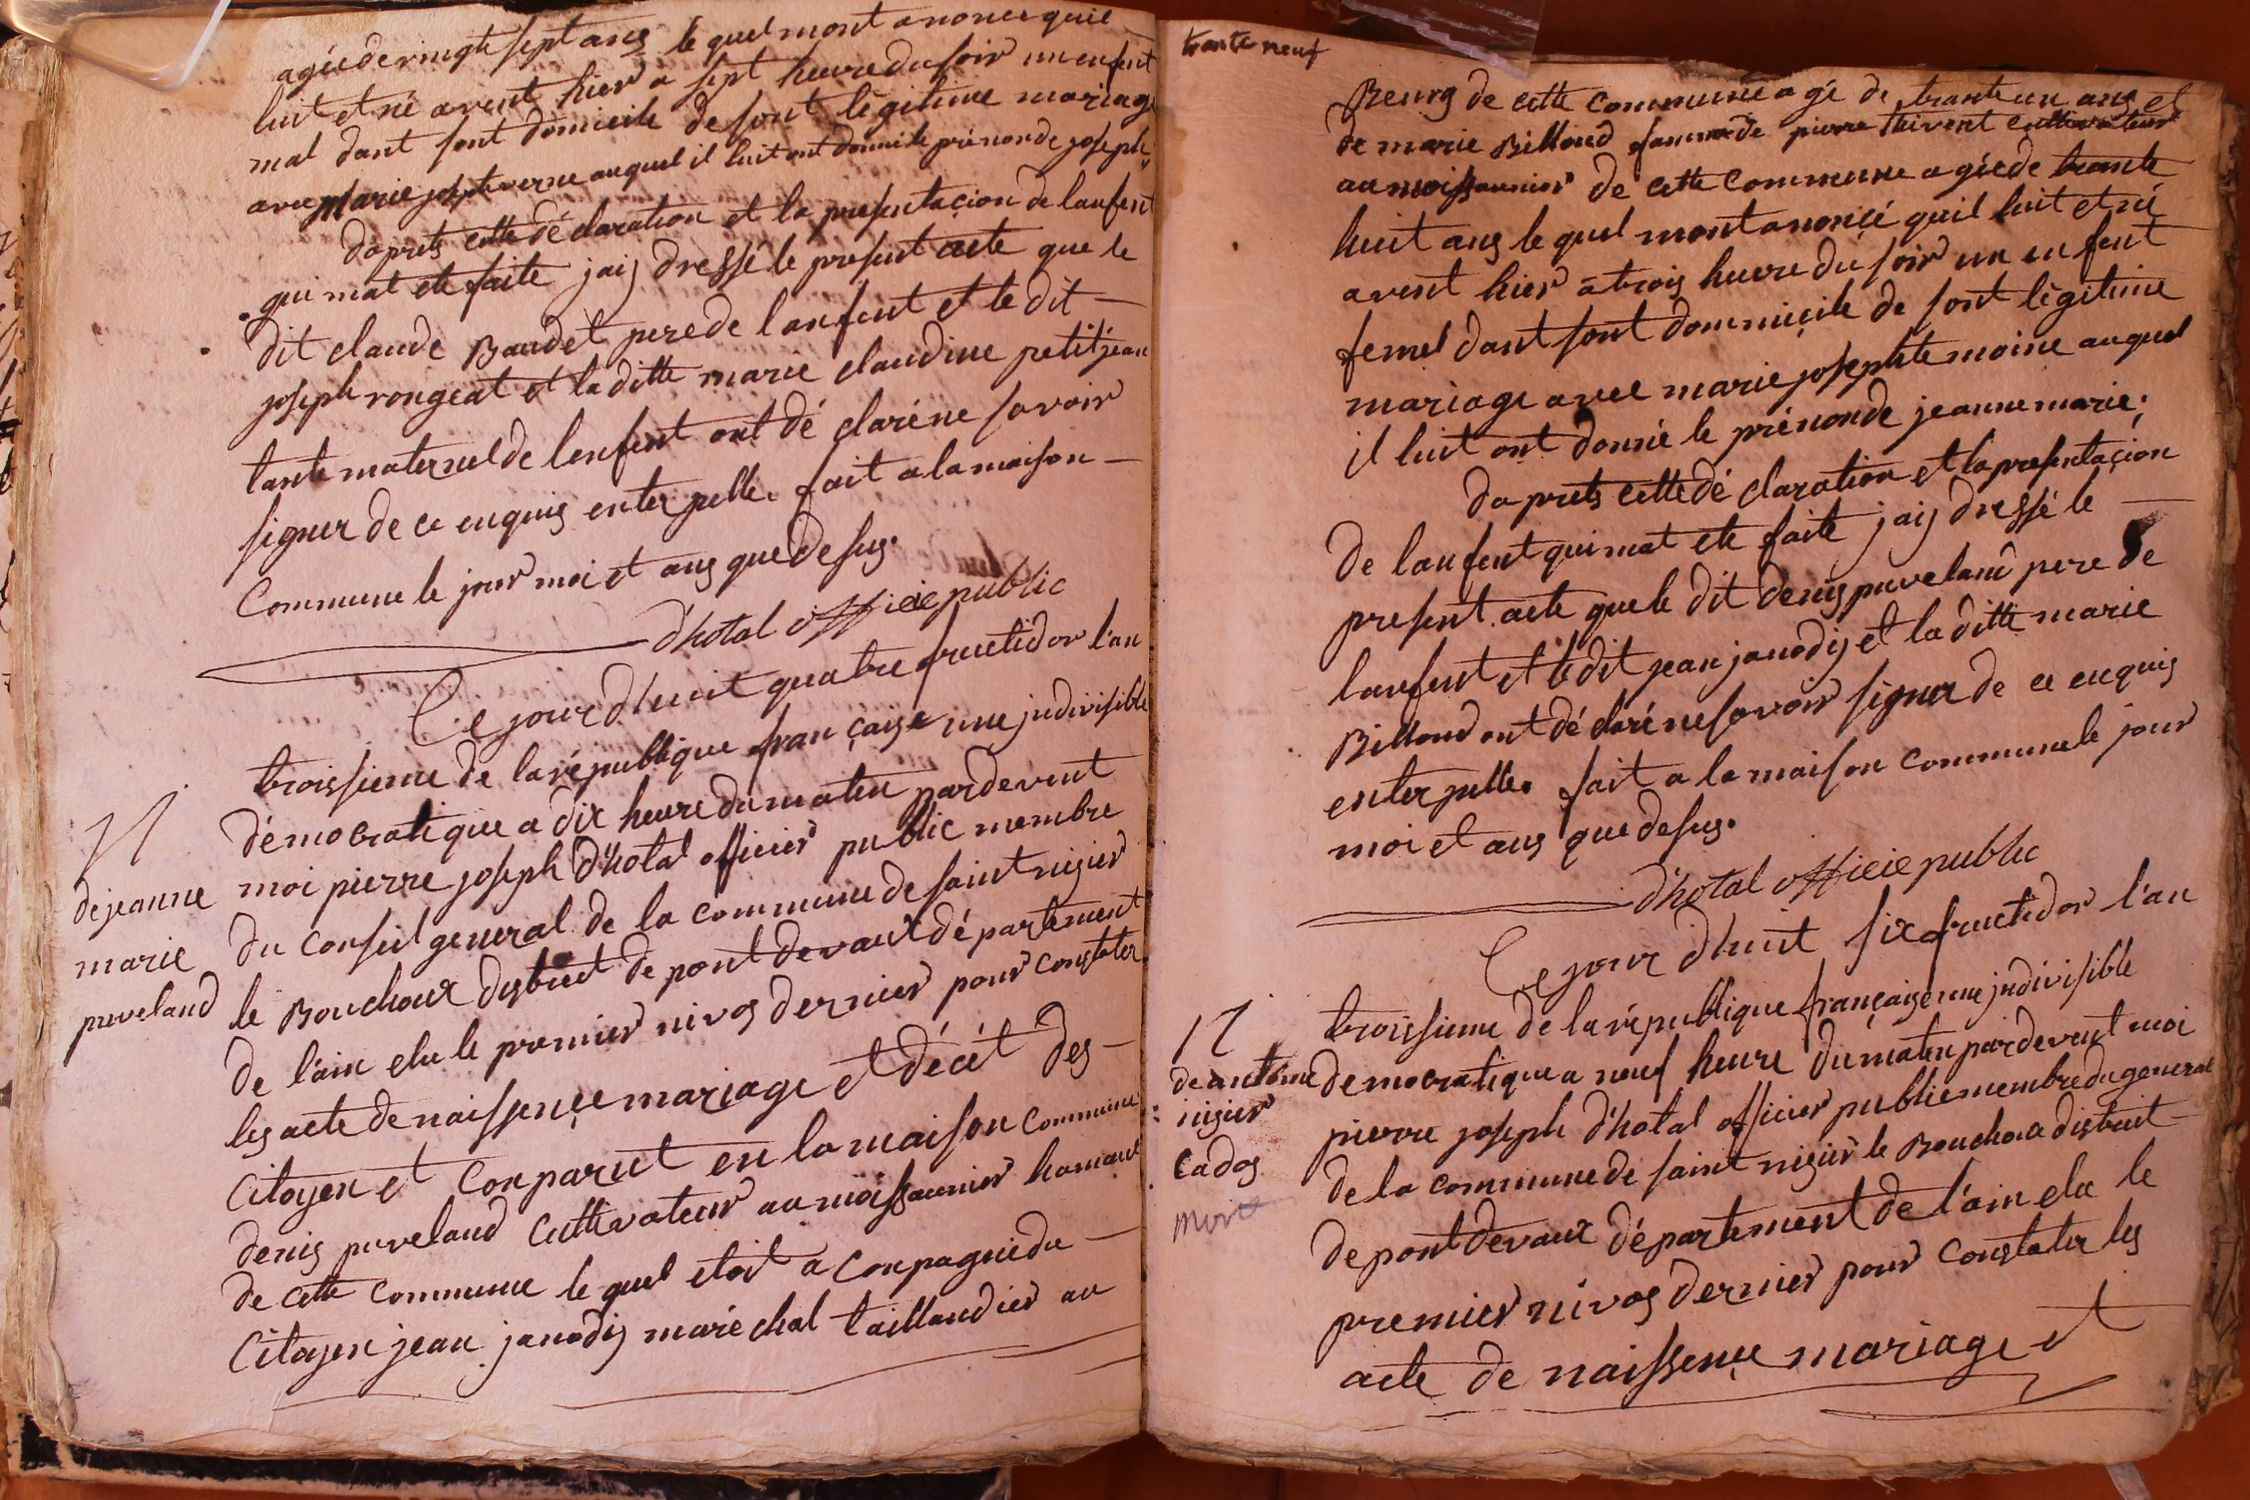 agée de vingt sept ans le quel mont anoncé quil
luit et né avent hier a sept heure du soir un enfent
mal dant sont domicile de sont légitime mariage
avec marie josepte verne auquel il luit ont donné le prénon de joseph
daprets cette déclaration et la presentaçion de lanfent
qui mat ete faite jaij dressé le present acte que le
dit claude Baudet pere de lanfent et le dit
joseph rongeat et la ditte marie claudine petitjean
tante maternel de lenfent ont dé claré ne savoir
signer de ce enquis enterpelle. fait a la maison
Commune le jour moi et ans que desus.
d'hotal officie public
Ce jour dhuit quatre fructidor l'an
troissieme de la république française une jndivisible
démocratique a dix heure du maten pardevent
moi pierre joseph d'hotal officier public membre
du Conseil general de la commune de saint nizier
le Bouchoux distrect de pont devaux département
de l'ain elu le premier nivos dernier pour constater
les acte de naissençe mariage et décét des
Citoyen et Conparut en la maison commune
denis puveland Cultivateur au moissonnier hamaux
de cette commune le quel etoit a Conpagnié du
Citoyen jean janodij maréchal taillandier au
N
de jeanne
marie
puveland
trante neuf
Beurg de cette commune agé de trante un ans et
de marie Billoud famme de pierre thivent cultivateur
au moissonnier de cette commune agée de trante
huit ans le quel mont anoncé quil luit et né
avent hier a trois heure du soir un enfent
femel dant sont dommiçile de sont légitime
mariage avec marie josephte moine auquel
il luit ont donné le prénon de jeanne marie.
daprets cette dé claration et la presentaçion
de lanfent qui mat ete faite jaij dressé le
present acte que le dit denis puveland pere de
lanfent et le dit jean janodij et la ditte marie
Billoud ont dé claré ne savoir signer de ce enquis
enterpelle. fait a la maison commune le jour
moi et ans que desus.
d'hotal officie public
Ce jour dhuit six fructidor l'an
troissieme de la république française une jndivisible
democratique a neuf heure du maten pardevent moi
pierre joseph d'hotal officier public membre du general
de la commune de saint nizier le Bouchoux distrect
de pont devaux département de l'ain elu le
premier nivos dernier pour constater les
acte de naissençe mariage et
N
de antoine
nizier
Cados
mort